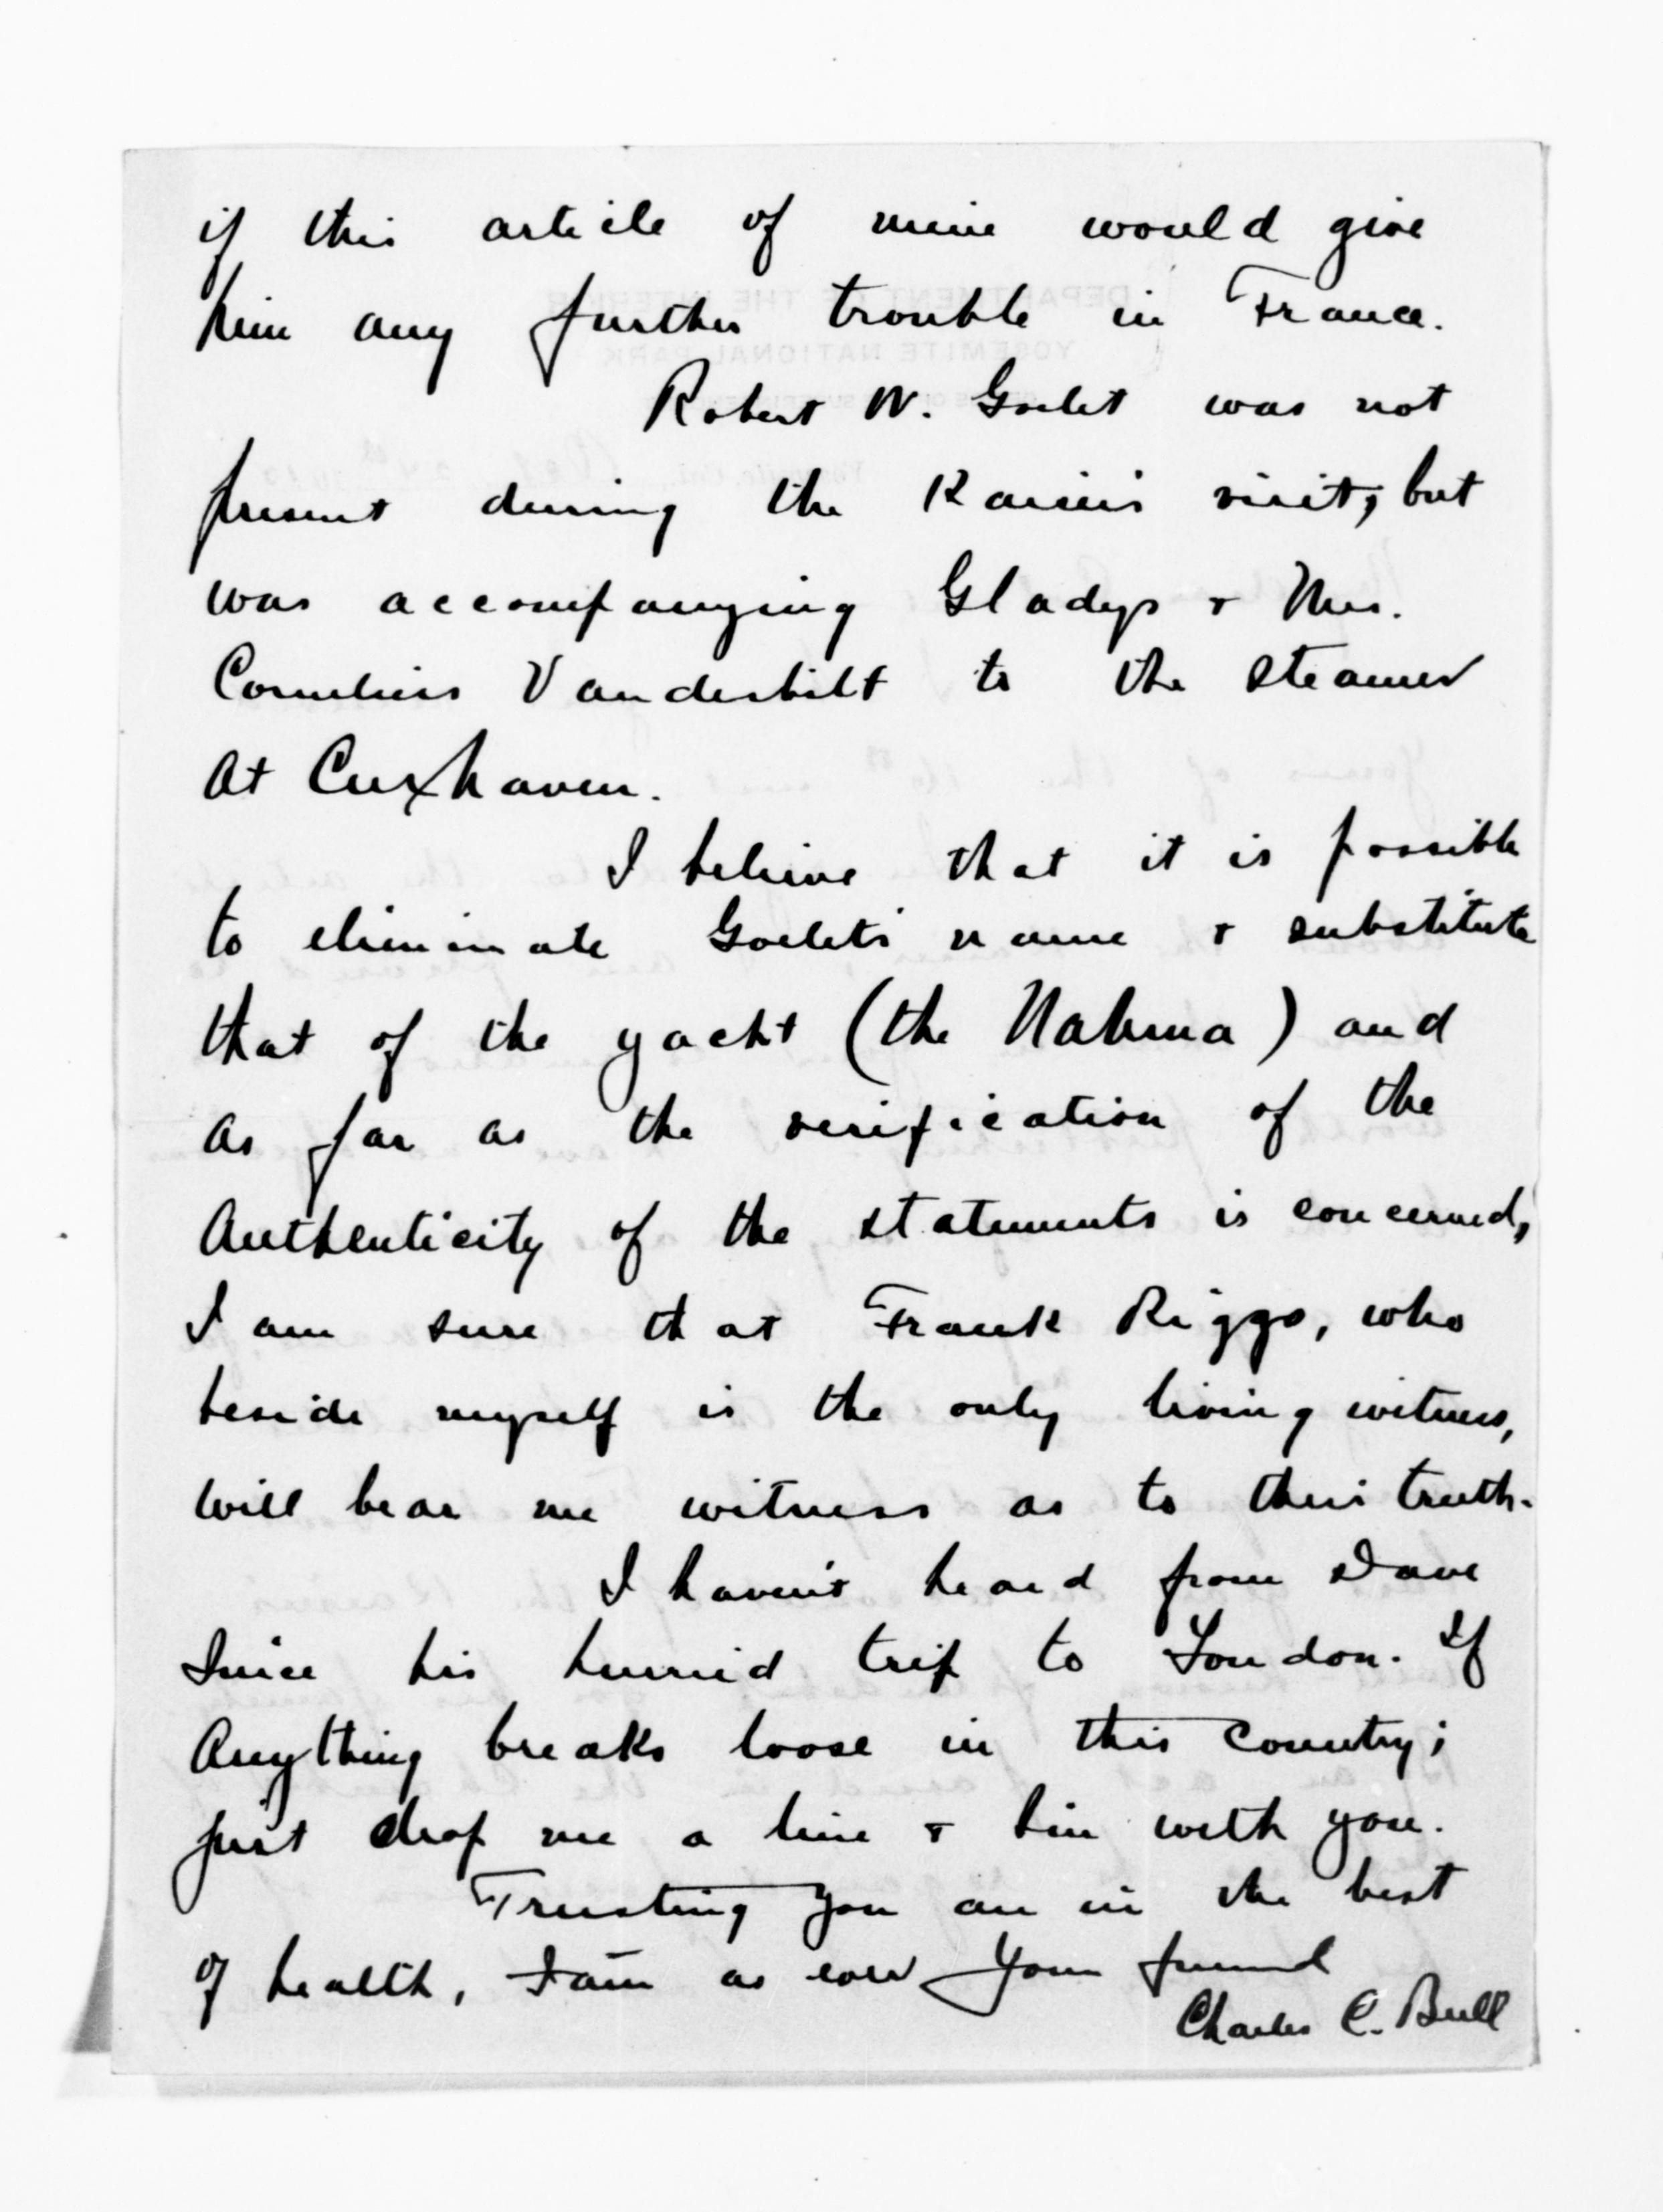 if this article of mine would give
him any further trouble in France.
Robert W. Goelet was not
present during the Kaiser's visit, but
was accompanying Gladys & Mrs.
Cornelius Vanderbilt to the steamer
at Cuxhaven.
I believe that it is possible
to eliminate Goelet's name & substitute
that of the yacht (the Nahma) and
as far as the verification of the
authenticity of the statements is concerned,
I am sure that Frank Riggs, who
beside myself is the only living witness,
will bear me witness as to their truth.
I haven't heard from Dave
since his hurried trip to London. If
anything breaks loose in this country;
just drop me a line & I'm with you.
Trusting you are in the best
of health, I am as ever your friend
Charles C. Bull
DEPARTMENT OF THE INTERIOR
YOSEMITE NATIONAL PARK